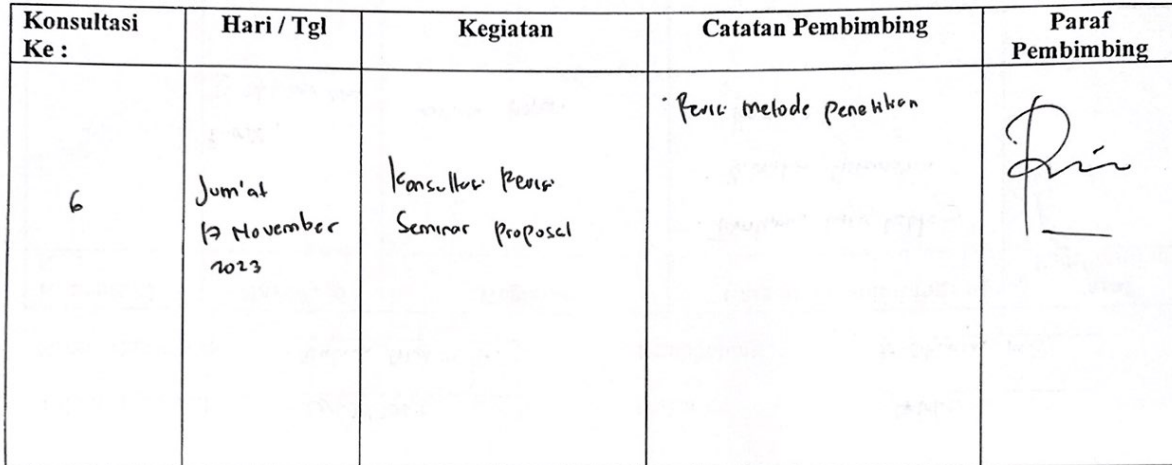 Konsultasi Ke :
Hari / Tgl
Kegiatan
Catatan Pembimbing
Paraf Pembimbing
6
Jum'at
17 November
2023
Konsultasi Revisi
Seminar Proposal
· Revisi metode penelitian